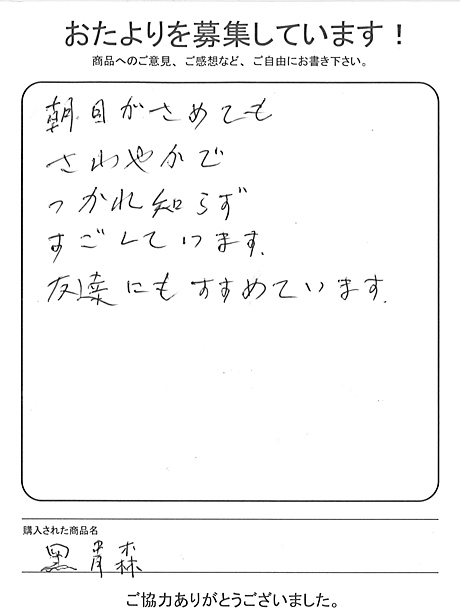 おたよりを募集しています！
商品へのご意見、ご感想など、ご自由にお書き下さい。
朝目がさめても
さわやかで
つかれ知らず
すごしています.
友達にもすすめています.
購入された商品名
黒青森
ご協力ありがとうございました。